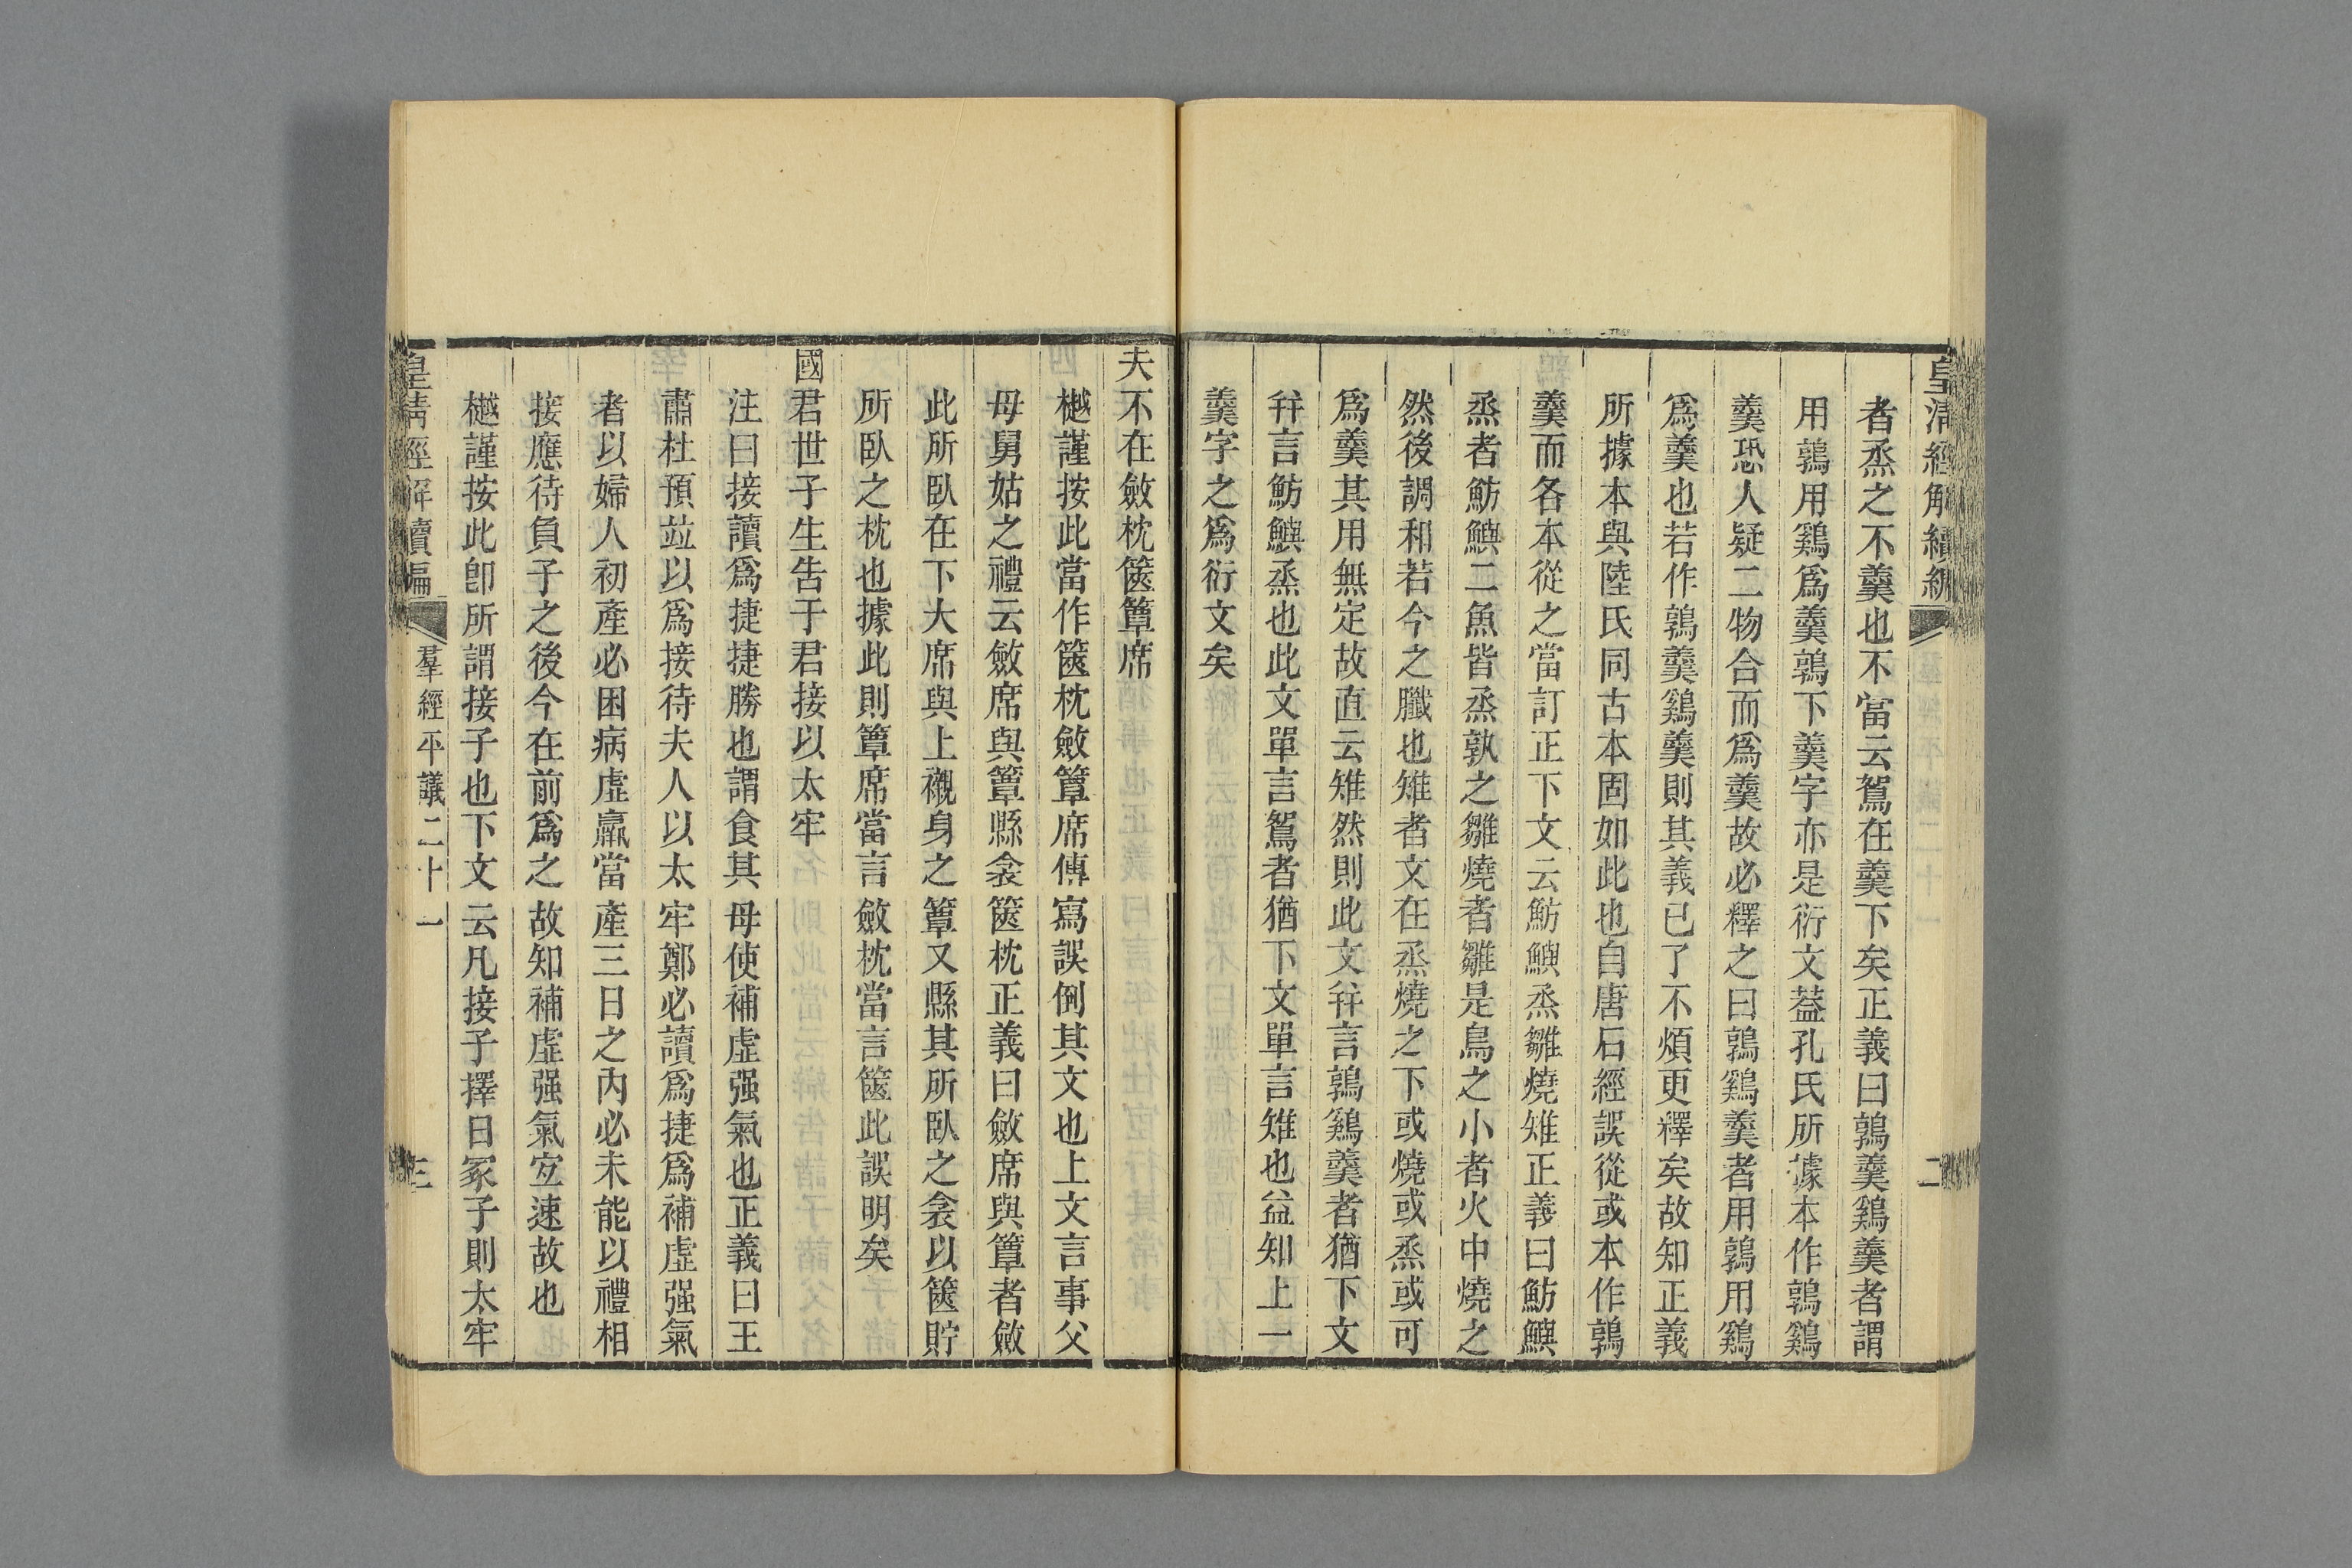 皇清經解續編
二
者烝之不羹也不當云鴽在羹下矣正義曰鶉羹鷄羹者謂
用鶉用鷄爲羹鶉下羹字亦是衍文葢孔氏所據本作鶉鷄
羹恐人疑二物合而爲羹故必釋之曰鶉鷄羹者用鶉用鷄
爲羹也若作鶉羹鷄羹則其義已了不煩更釋矣故知正義
所據本與陸氏同古本固如此也自唐石經誤從或本作鶉
羹而各本從之當訂正下文云魴鱮烝雛燒雉正義曰魴鱮
烝者魴鱮二魚皆烝孰之雛燒者雛是鳥之小者火中燒之
然後調和若今之臘也雉者文在烝燒之下或燒或烝或可
爲羹其用無定故直云雉然則此文幷言鶉鷄羹者猶下文
幷言魴鱮烝也此文單言鴽者猶下文單言雉也益知上一
羹字之爲衍文矣
夫不在斂枕篋簟席
樾謹按此當作篋枕斂簟席傳寫誤倒其文也上文言事父
母舅姑之禮云斂席與簟縣衾篋枕正義曰斂席與簟者斂
此所臥在下大席與上襯身之簟又縣其所臥之衾以篋貯
所臥之枕也據此則簟席當言斂枕當言篋此誤明矣
國君世子生吿于君接以太牢
注曰接讀爲捷捷勝也謂食其母使補虛强氣也正義曰王
肅杜預竝以爲接待夫人以太牢鄭必讀爲捷爲補虛强氣
者以婦人初產必困病虛羸當產三日之內必未能以禮相
接應待負子之後今在前爲之故知補虛强氣宐速故也
樾謹按此卽所謂接子也下文云凡接子擇日冢子則太牢
皇清經解續編
羣經平議二十一
三